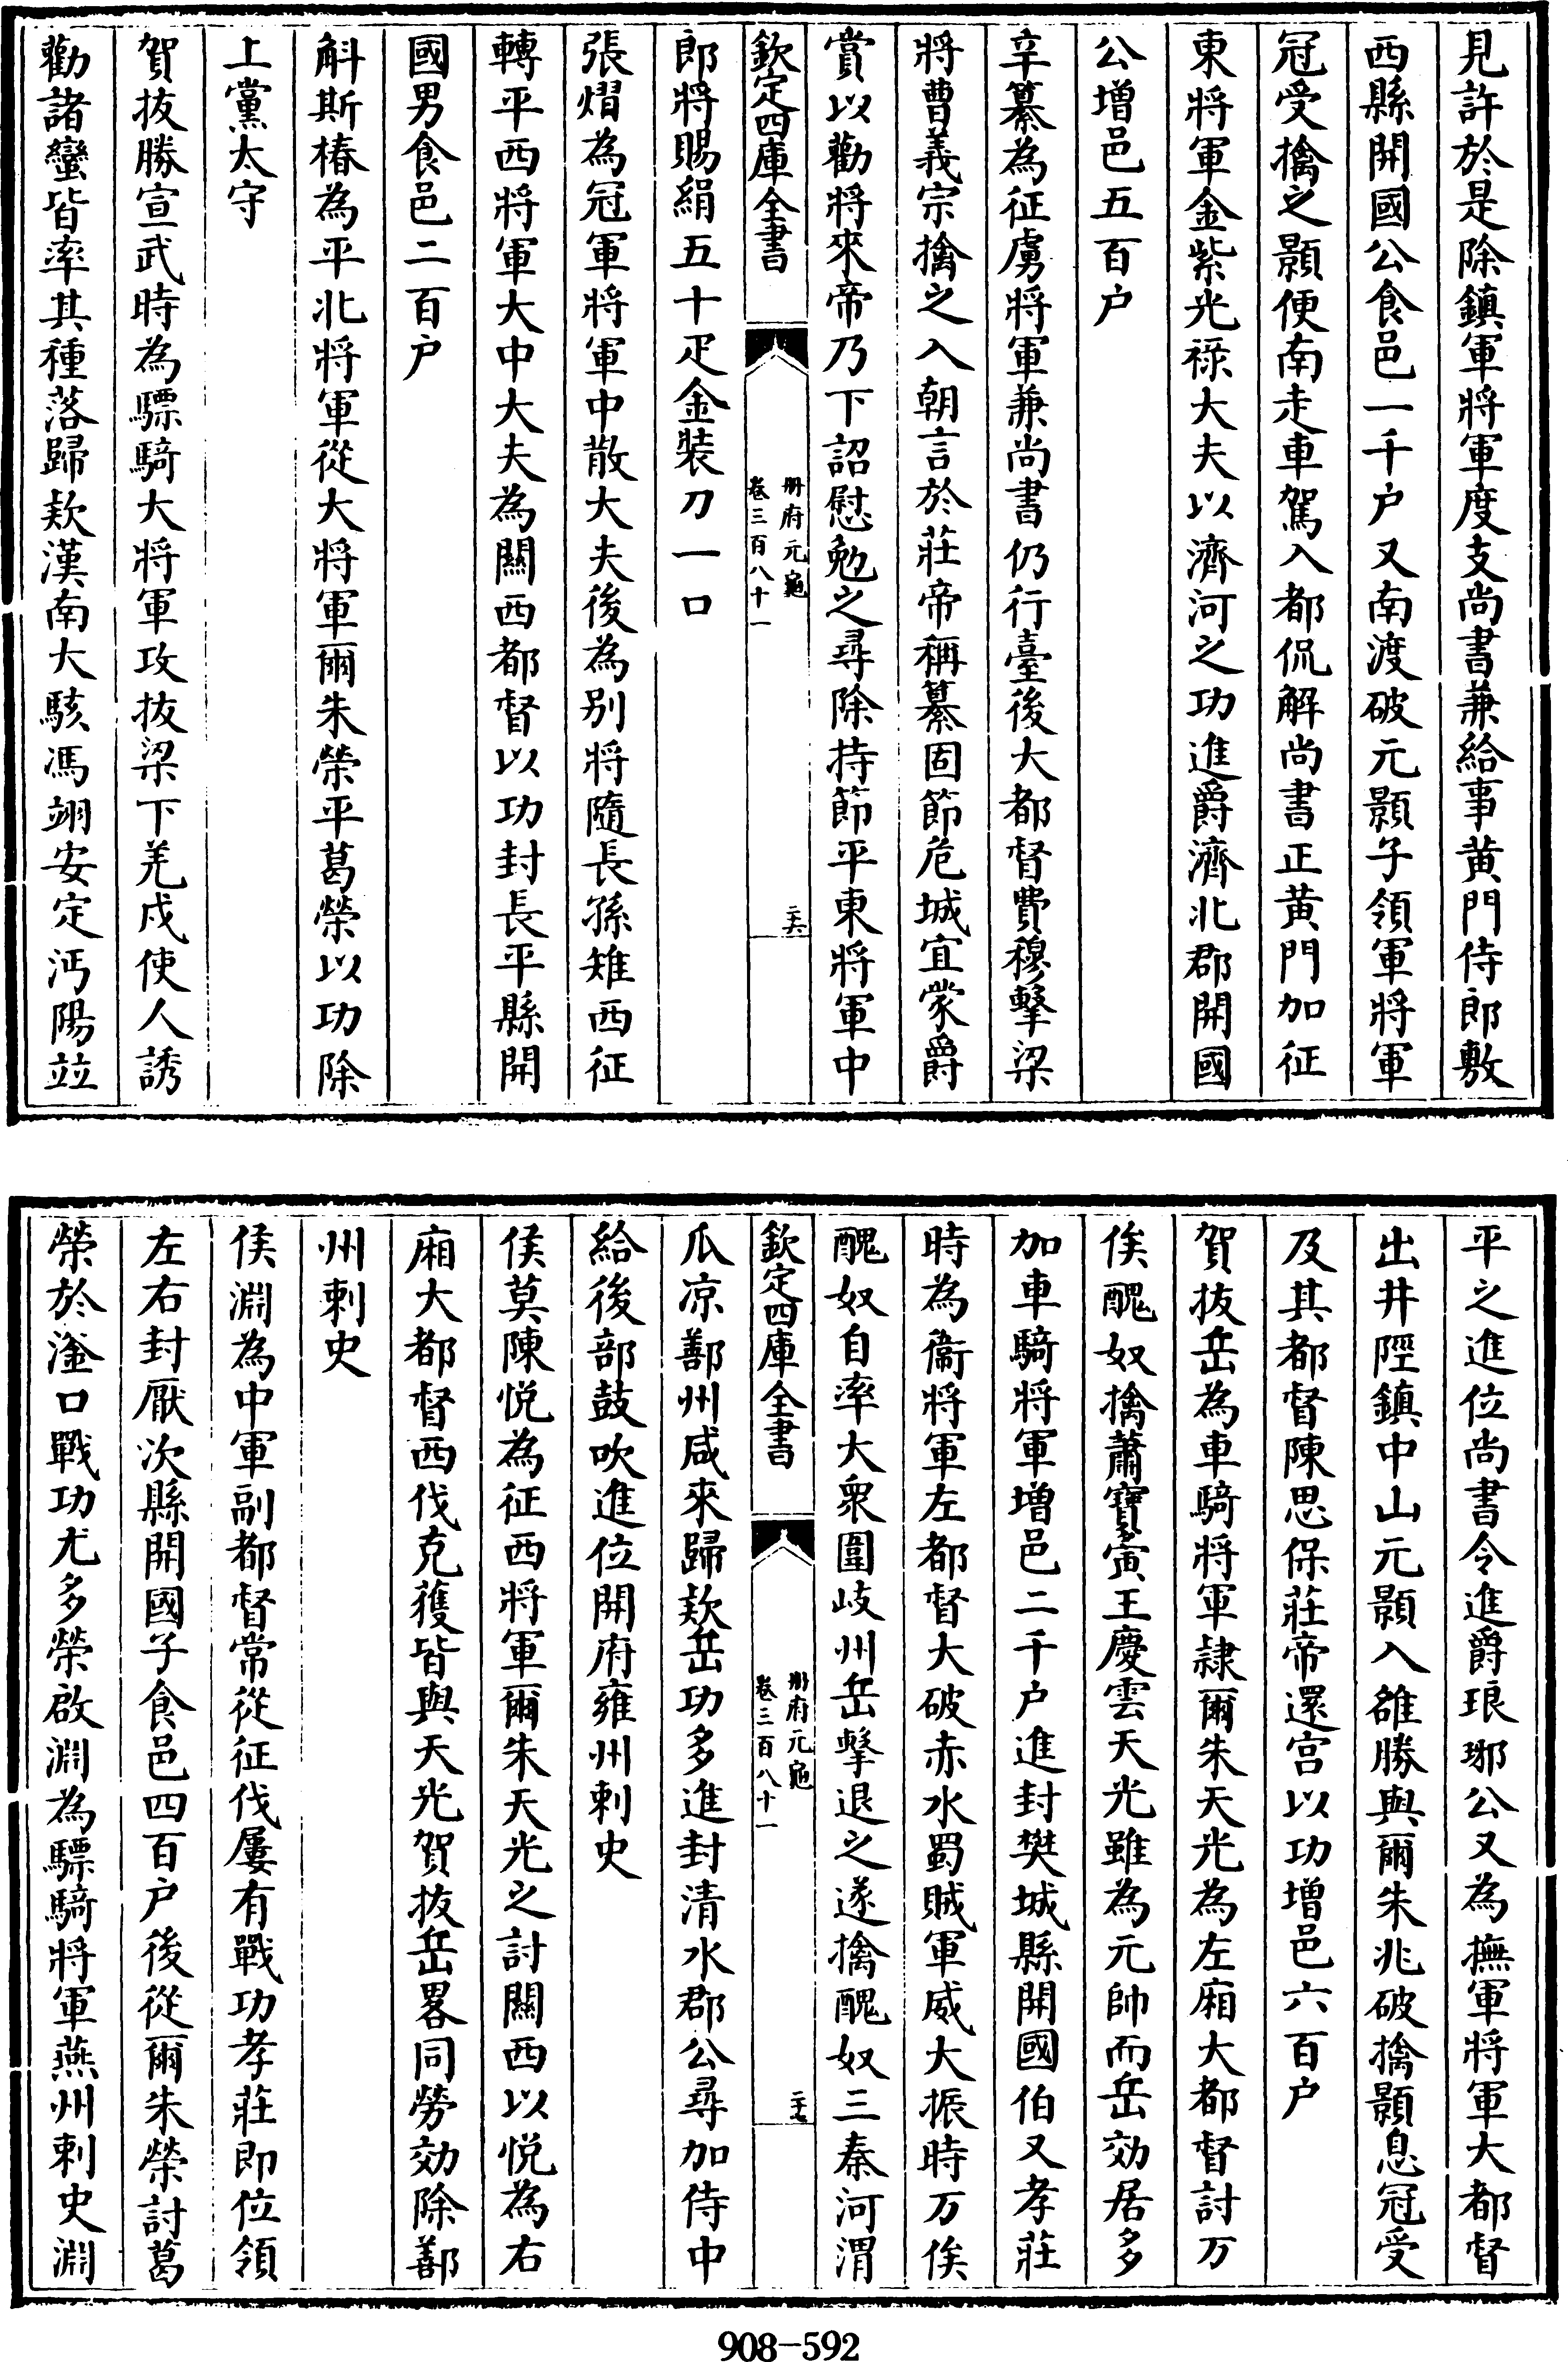 見許於是除鎮軍將軍度支尚書兼給事黄門侍郎敷
西縣開國公食邑一千户又南渡破元顥子領軍將軍
冠受擒之顥便南走車駕入都侃解尚書正黄門加征
東將軍金紫光祿大夫以濟河之功進爵濟北郡開國
公增邑五百户
辛纂為征虜將軍兼尚書仍行臺後大都督費穆擊梁
將曹義宗擒之入朝言於莊帝稱纂固節危城宜蒙爵
賞以勸將來帝乃下詔慰勉之尋除持節平東將軍中
欽定四庫全書
册府元龜
卷三百八十一
二十六
郎將賜絹五十疋金裝刀一口
張熠為冠軍將軍中散大夫後為别將隨長孫雉西征
轉平西將軍大中大夫為關西都督以功封長平縣開
國男食邑二百户
斛斯椿為平北將軍從大將軍爾朱榮平葛榮以功除
上黨太守
賀拔勝宣武時為驃騎大將軍攻拔梁下羌戍使人誘
勸諸蠻皆率其種落歸欵漢南大駭馮翊安定沔陽竝
平之進位尚書令進爵琅琊公又為撫軍將軍大都督
出井陘鎮中山元顥入雒勝與爾朱兆破擒顥息冠受
及其都督陳思保莊帝還宫以功增邑六百户
賀拔岳為車騎將軍隷爾朱天光為左廂大都督討万
俟醜奴擒蕭寳寅王慶雲天光雖為元帥而岳効居多
加車騎將軍增邑二千户進封樊城縣開國伯又孝莊
時為衞將軍左都督大破赤水蜀賊軍威大振時万俟
醜奴自率大衆圍岐州岳擊退之遂擒醜奴三秦河渭
欽定四庫全書
册府元龜
卷三百八十一
二十七
瓜凉鄯州咸來歸欵岳功多進封清水郡公尋加侍中
給後部鼓吹進位開府雍州刺史
侯莫陳悦為征西將軍爾朱天光之討關西以悦為右
廂大都督西伐克獲皆與天光賀拔岳畧同勞効除鄯
州刺史
侯淵為中軍副都督常從征伐屢有戰功孝莊即位領
左右封厭次縣開國子食邑四百户後從爾朱榮討葛
榮於滏口戰功尤多榮啟淵為驃騎將軍燕州刺史淵
908-592